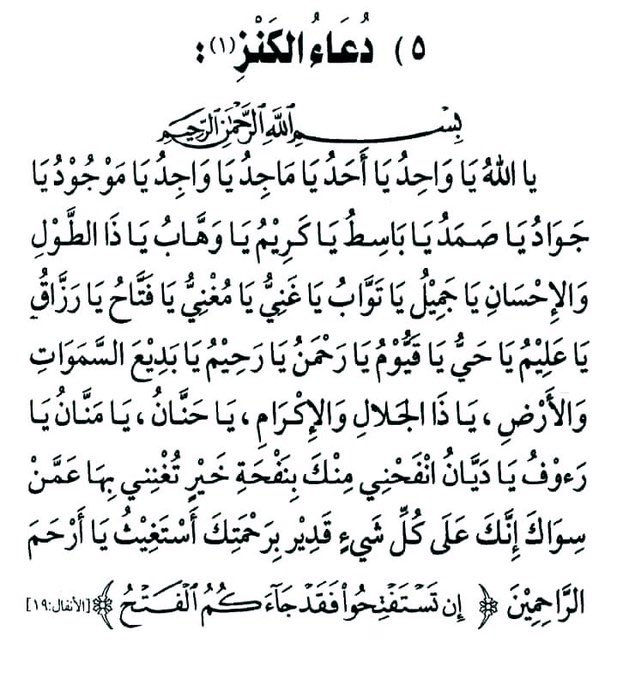 ٥ ) دُعَاءُ الكَنْزِ (١) :
بِسْمِ اللَّهِ الرَّحْمَٰنِ الرَّحِيمِ
يا اللهُ يَا وَاحِدُ يَا أَحَدُ يَا مَاجِدُ يَا وَاجِدُ يَا مَوْجُوْدُ يَا
جَوَادُ يَا صَمَدُ يَا بَاسِطُ يَا كَرِيْمُ يَا وَهَّابُ يَا ذَا الطَّوْلِ
وَالإِحْسَانِ يَا جَمِيْلُ يَا تَوَّابُ يَا غَنِيُّ يَا مُغْنِيُّ يَا فَتَّاحُ يَا رَزَّاقُ
يَا عَلِيْمُ يَا حَيُّ يَا قَيُّوْمُ يَا رَحْمَنُ يَا رَحِيْمُ يَا بَدِيْعَ السَّمَوَاتِ
وَالأَرْضِ ، يَا ذَا الجَلالِ وَالإِكْرَامِ ، يَا حَنَّانُ ، يَا مَنَّانُ يَا
رَءوْفُ يَا دَيَّانُ انْفَحْنِي مِنْكَ بِنَفْحَةِ خَيْرٍ تُغْنِني بِهَا عَمَّنْ
سِوَاكَ إِنَّكَ عَلَى كُلِّ شَيْءٍ قَدِيْر بِرَحْمَتِكَ أَسْتَغِيْثُ يَا أَرْحَمَ
الرَّاحِمِيْنَ ﴿ إِن تَسْتَفْتِحُواْ فَقَدْ جَآءَكُمُ الْفَتْحُ ﴾ [الأنفال: ١٩]